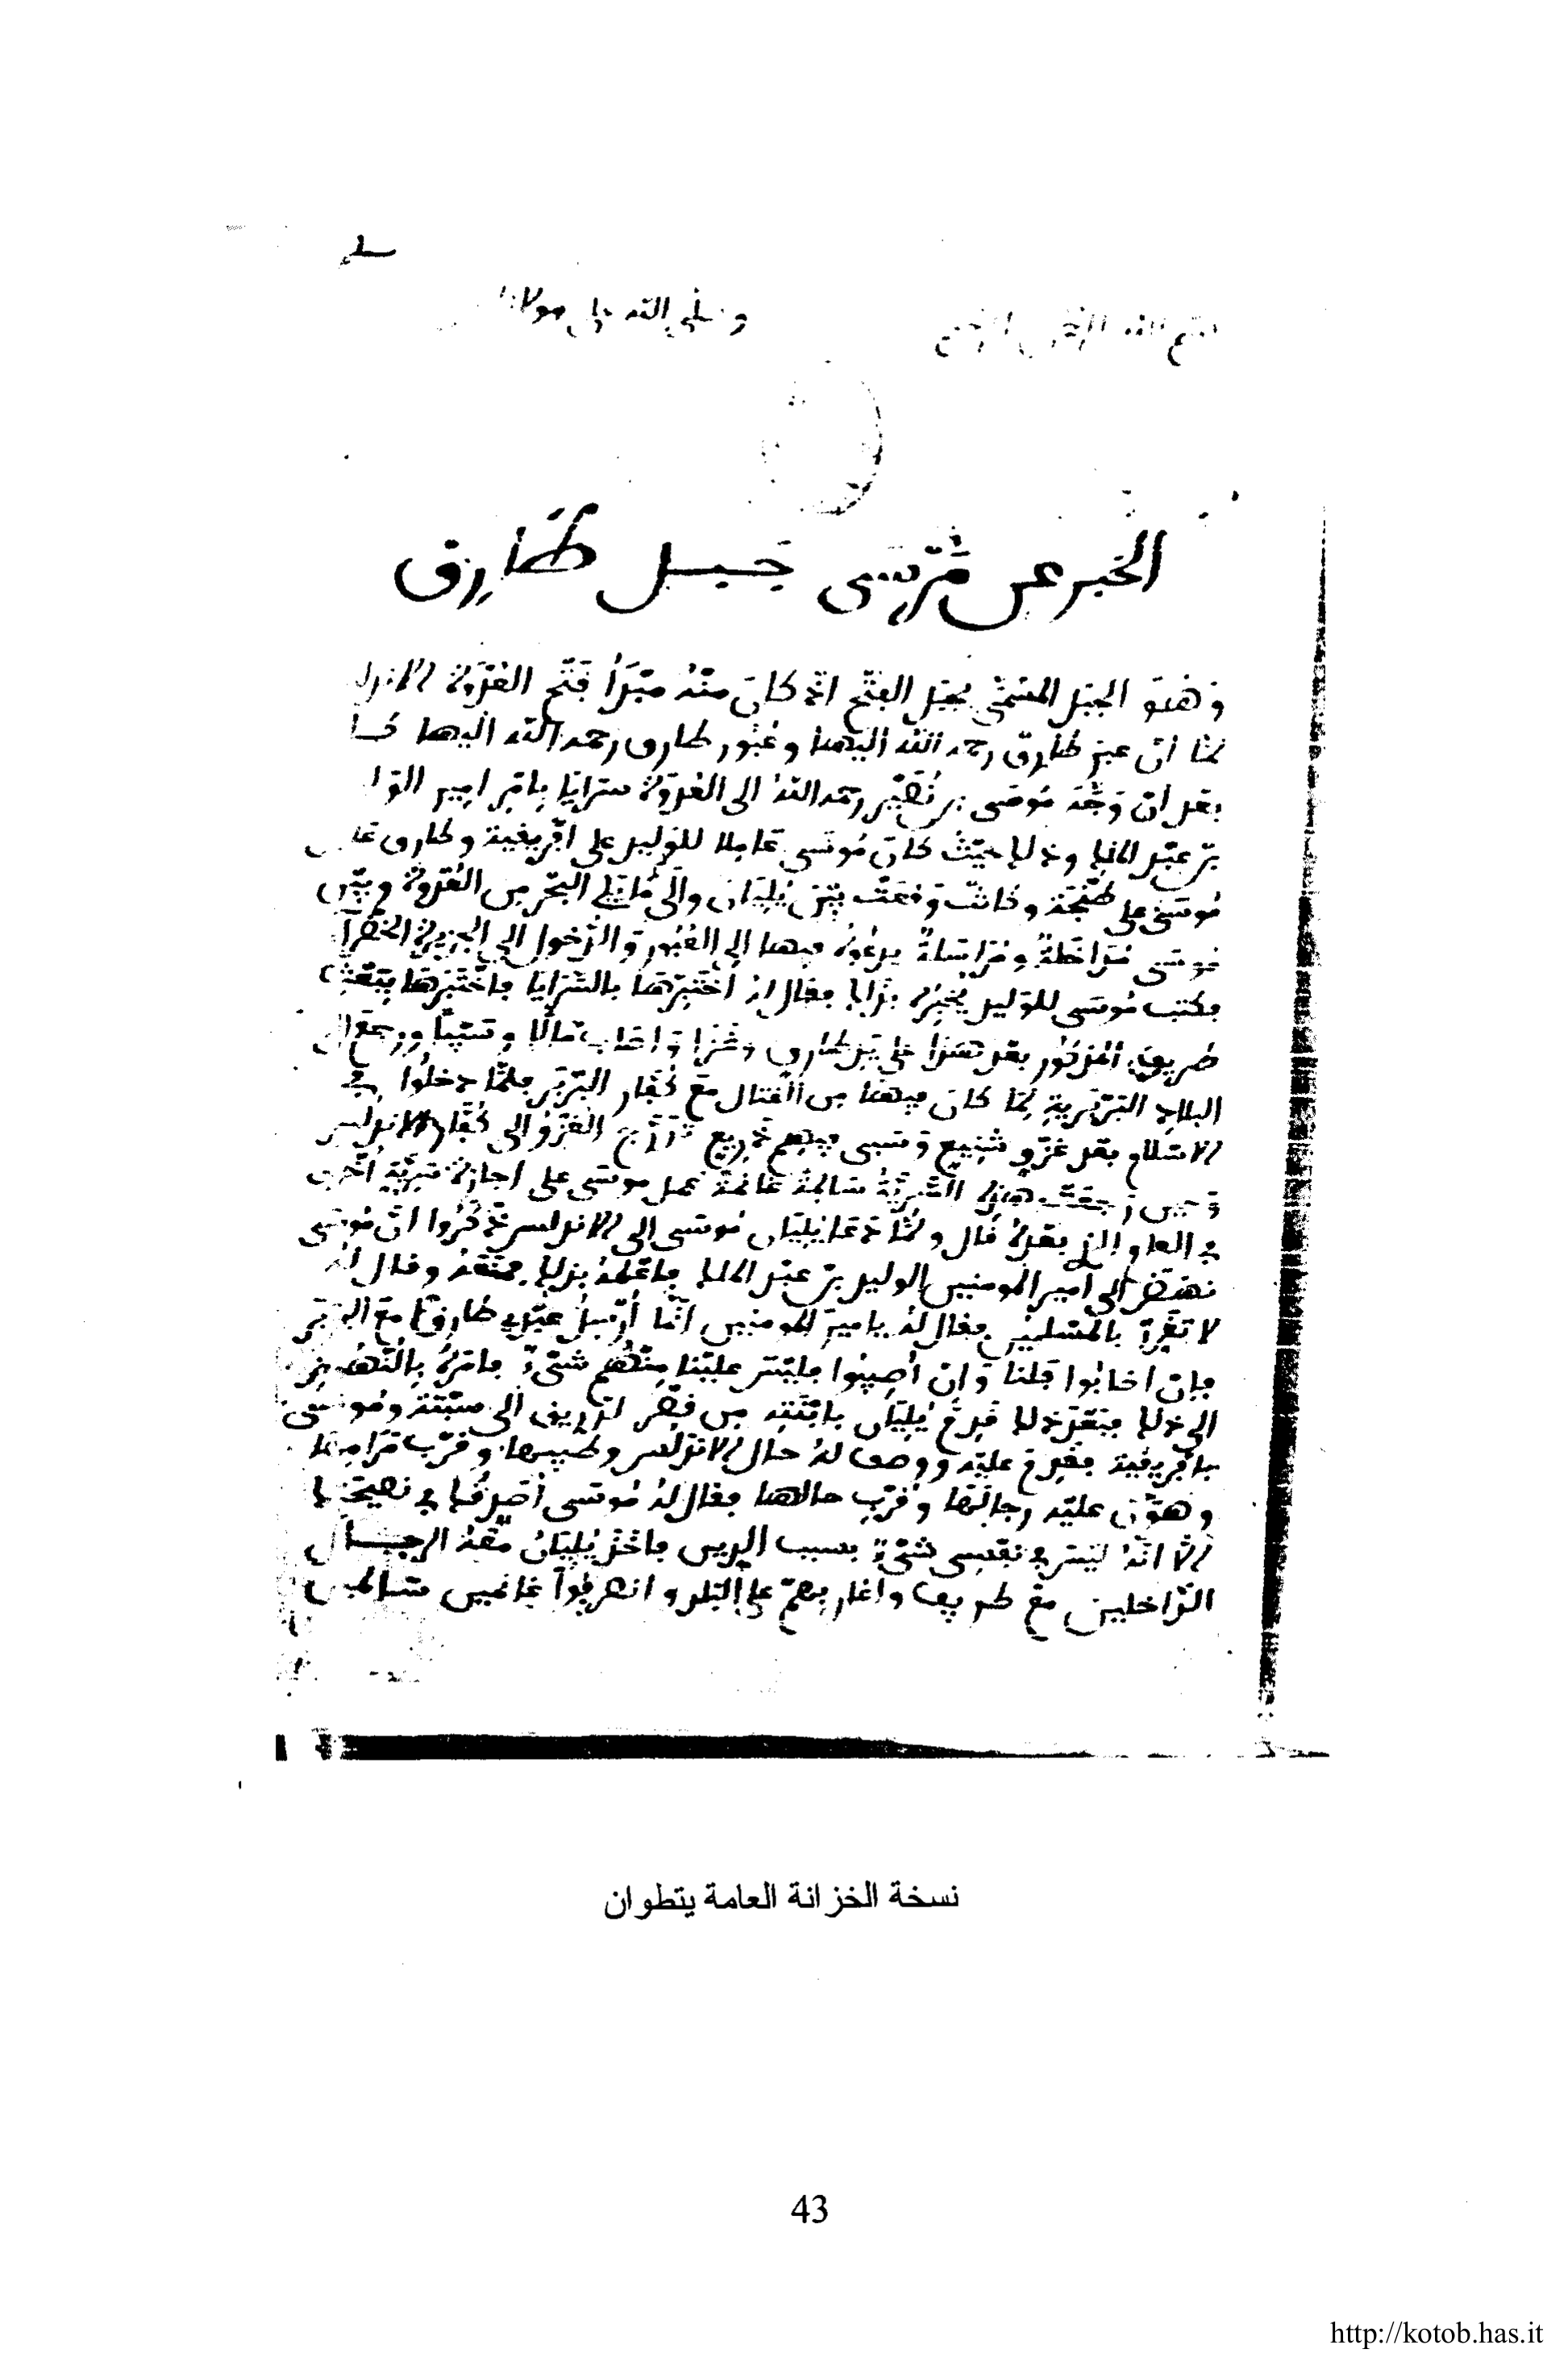 وصلى الله على مولانا
الخبر عن مرسى جبل طارق
وهو الجبل المسمى بجبل الفتح الذي كان منه مبدأ فتح العدوة
لما ان عبر طارق رحمه الله اليها وعبور طارق رحمه الله اليها
بعد ان وجه موسى بن نصير رحمه الله الى العدوة سرايا بامر امير
بن عبد الملك وذلك حيث كان موسى عاملا للوليد على افريقية وطارق
موسى على طنجة وكانت وقعت بين يليان والي ما يلي البحر من العدوة وبين
موسى مداخلة ومراسلة يدعوه فيها الى العبور والدخول الى الجزيرة الخضرآ
فكتب موسى للوليد يخبره بذلك فقال له اختبرها بالسرايا فاختبرها ببعث
طريف المذكور بعد هذا على يد طارق وغزا واصاب مالا وسبيا ورجع الى
البلاد البربرية لما كان فيها من القتال مع كفار البربر فلما دخلوا في
الاسلام بعد غزو شنيع وسبي فيهم ذريع الغزو الى كفار الاندلس
وحين رجعت هذه السرية سالمة غانمة عمل موسى على اجازة سرية اخرى
في العام الذي بعده قال ولما دعا يليان موسى الى الاندلس ذكروا ان موسى
نهض الى امير المومنين الوليد بن عبد الملك فاعلمه بذلك فمنعه وقال له
لا تغرر بالمسلمين فقال له يامير المومنين انما ارسل عبدي طارق مع البربر
فان اصابوا فلنا وان اصيبوا فليس علينا منهم شيء فامره بالنهوض
الى ذلك فبعد ذلك قدم يليان بابنته من قصر لذريق الى سبتة وموسى
بافريقية فقدم عليه ووصف له حال الاندلس وطيبها وقرب مرامها
وهون عليه رجالها وقرب حالها فقال له موسى اصدقك في نصيحتك
الا انه ليس في نفسي شيء بسبب الدين فاخذ يليان معه الرجال
الداخلين مع طريف واغار بهم على البلد وانصرفوا غانمين سالمين
نسخة الخزانة العامة يتطوان
43
http://kotob.has.it